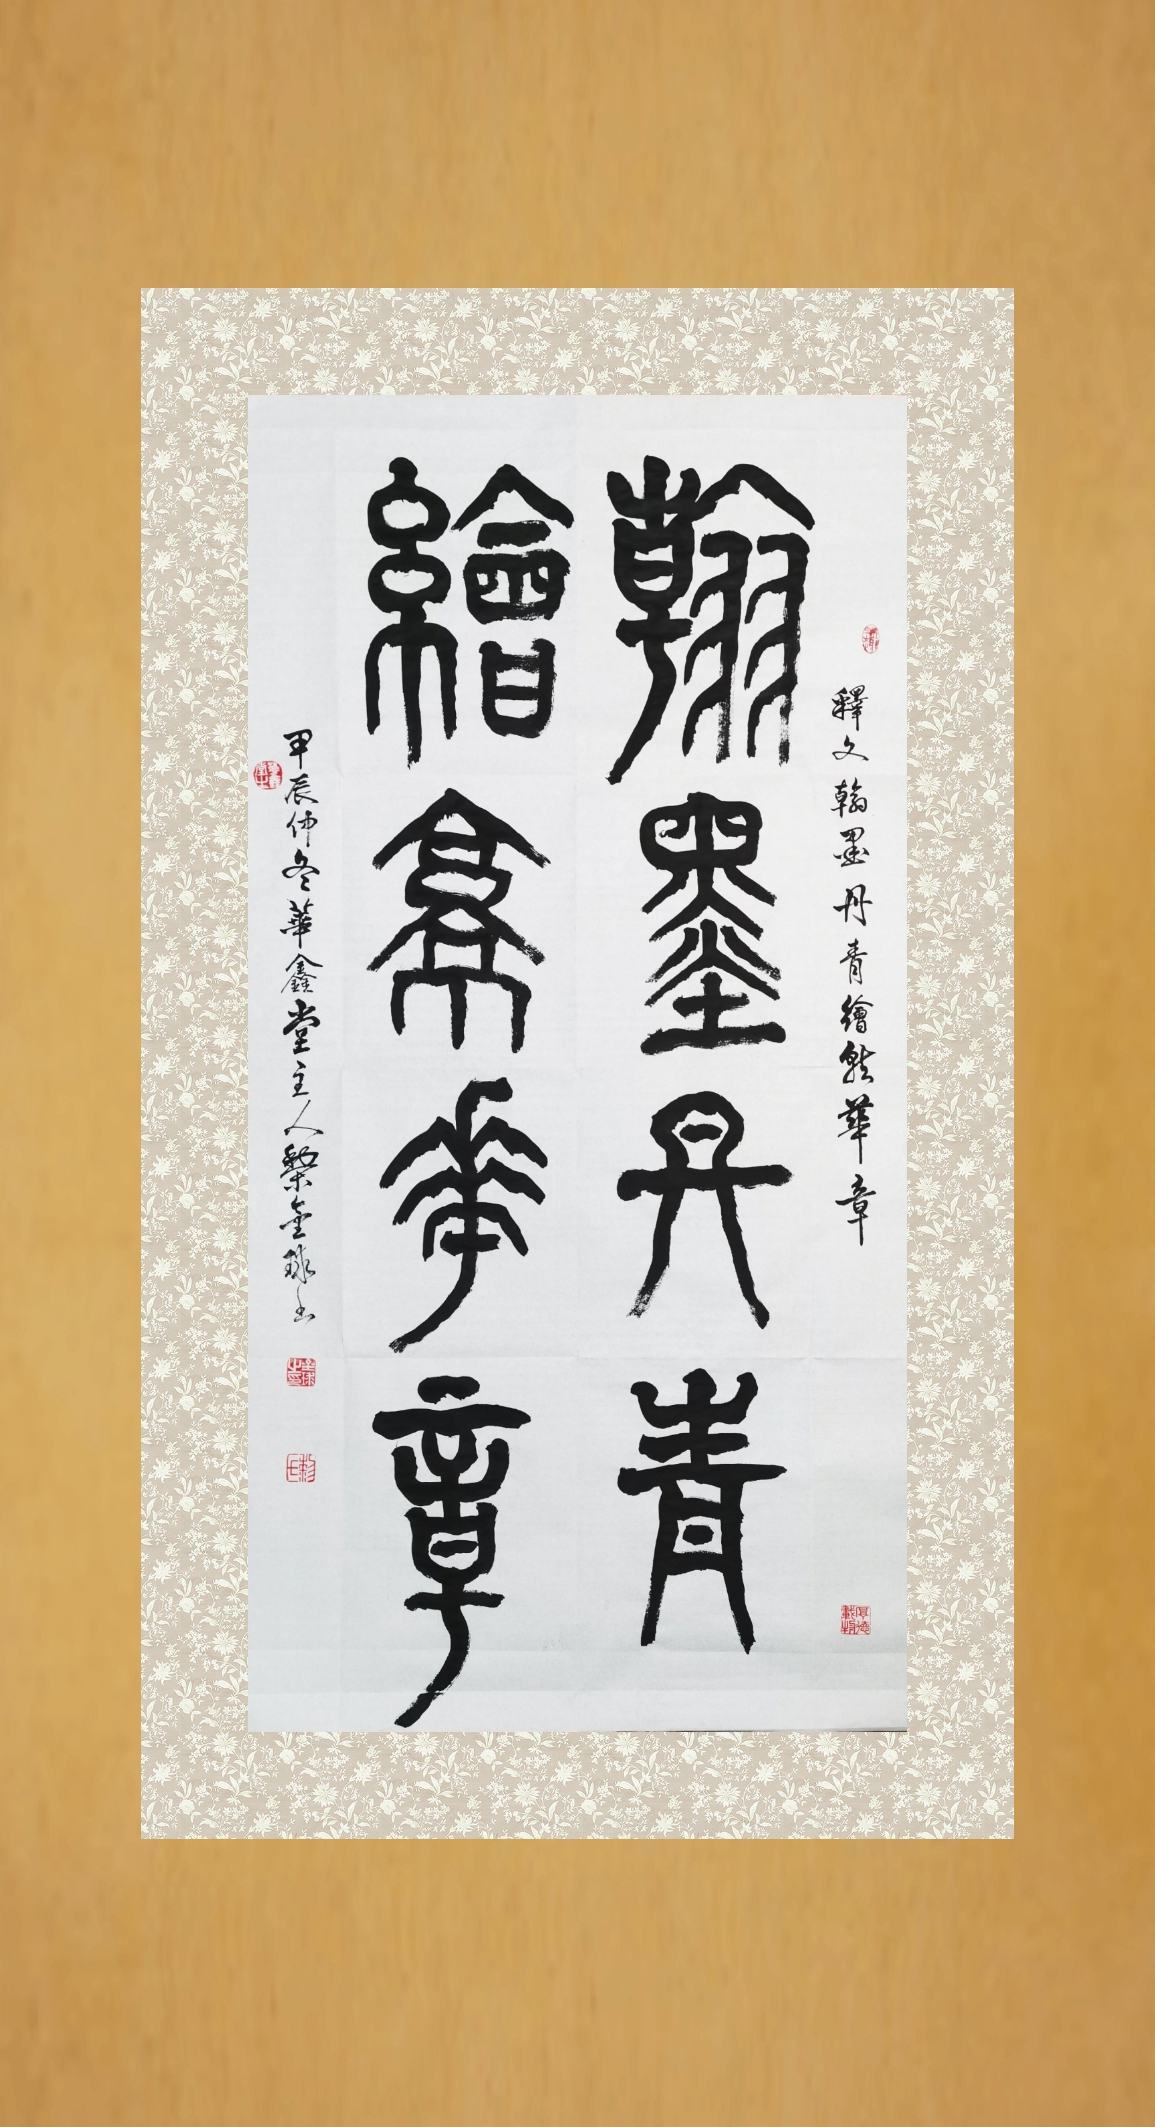 釋文翰墨丹青繪就華章
厚德載物
翰墨丹青
繪就華章
甲辰仲冬華鑫堂主人黎金球書